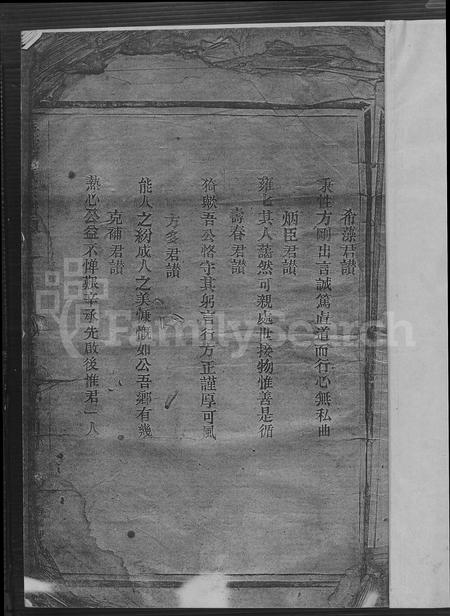 希藻君讃
秉性方剛出言誠篤直道而行心無私曲
炳臣君讃
雍〻其人藹然可親處世接物惟善是循
壽春君讃
猗歟吾公恪守其躬言行方正謹厚可風
方多君讃
能人之紛成人之美慷慨如公吾鄉有幾
克補君讃
熱心公益不憚艱辛承先啟後惟君一人
FamilySearch